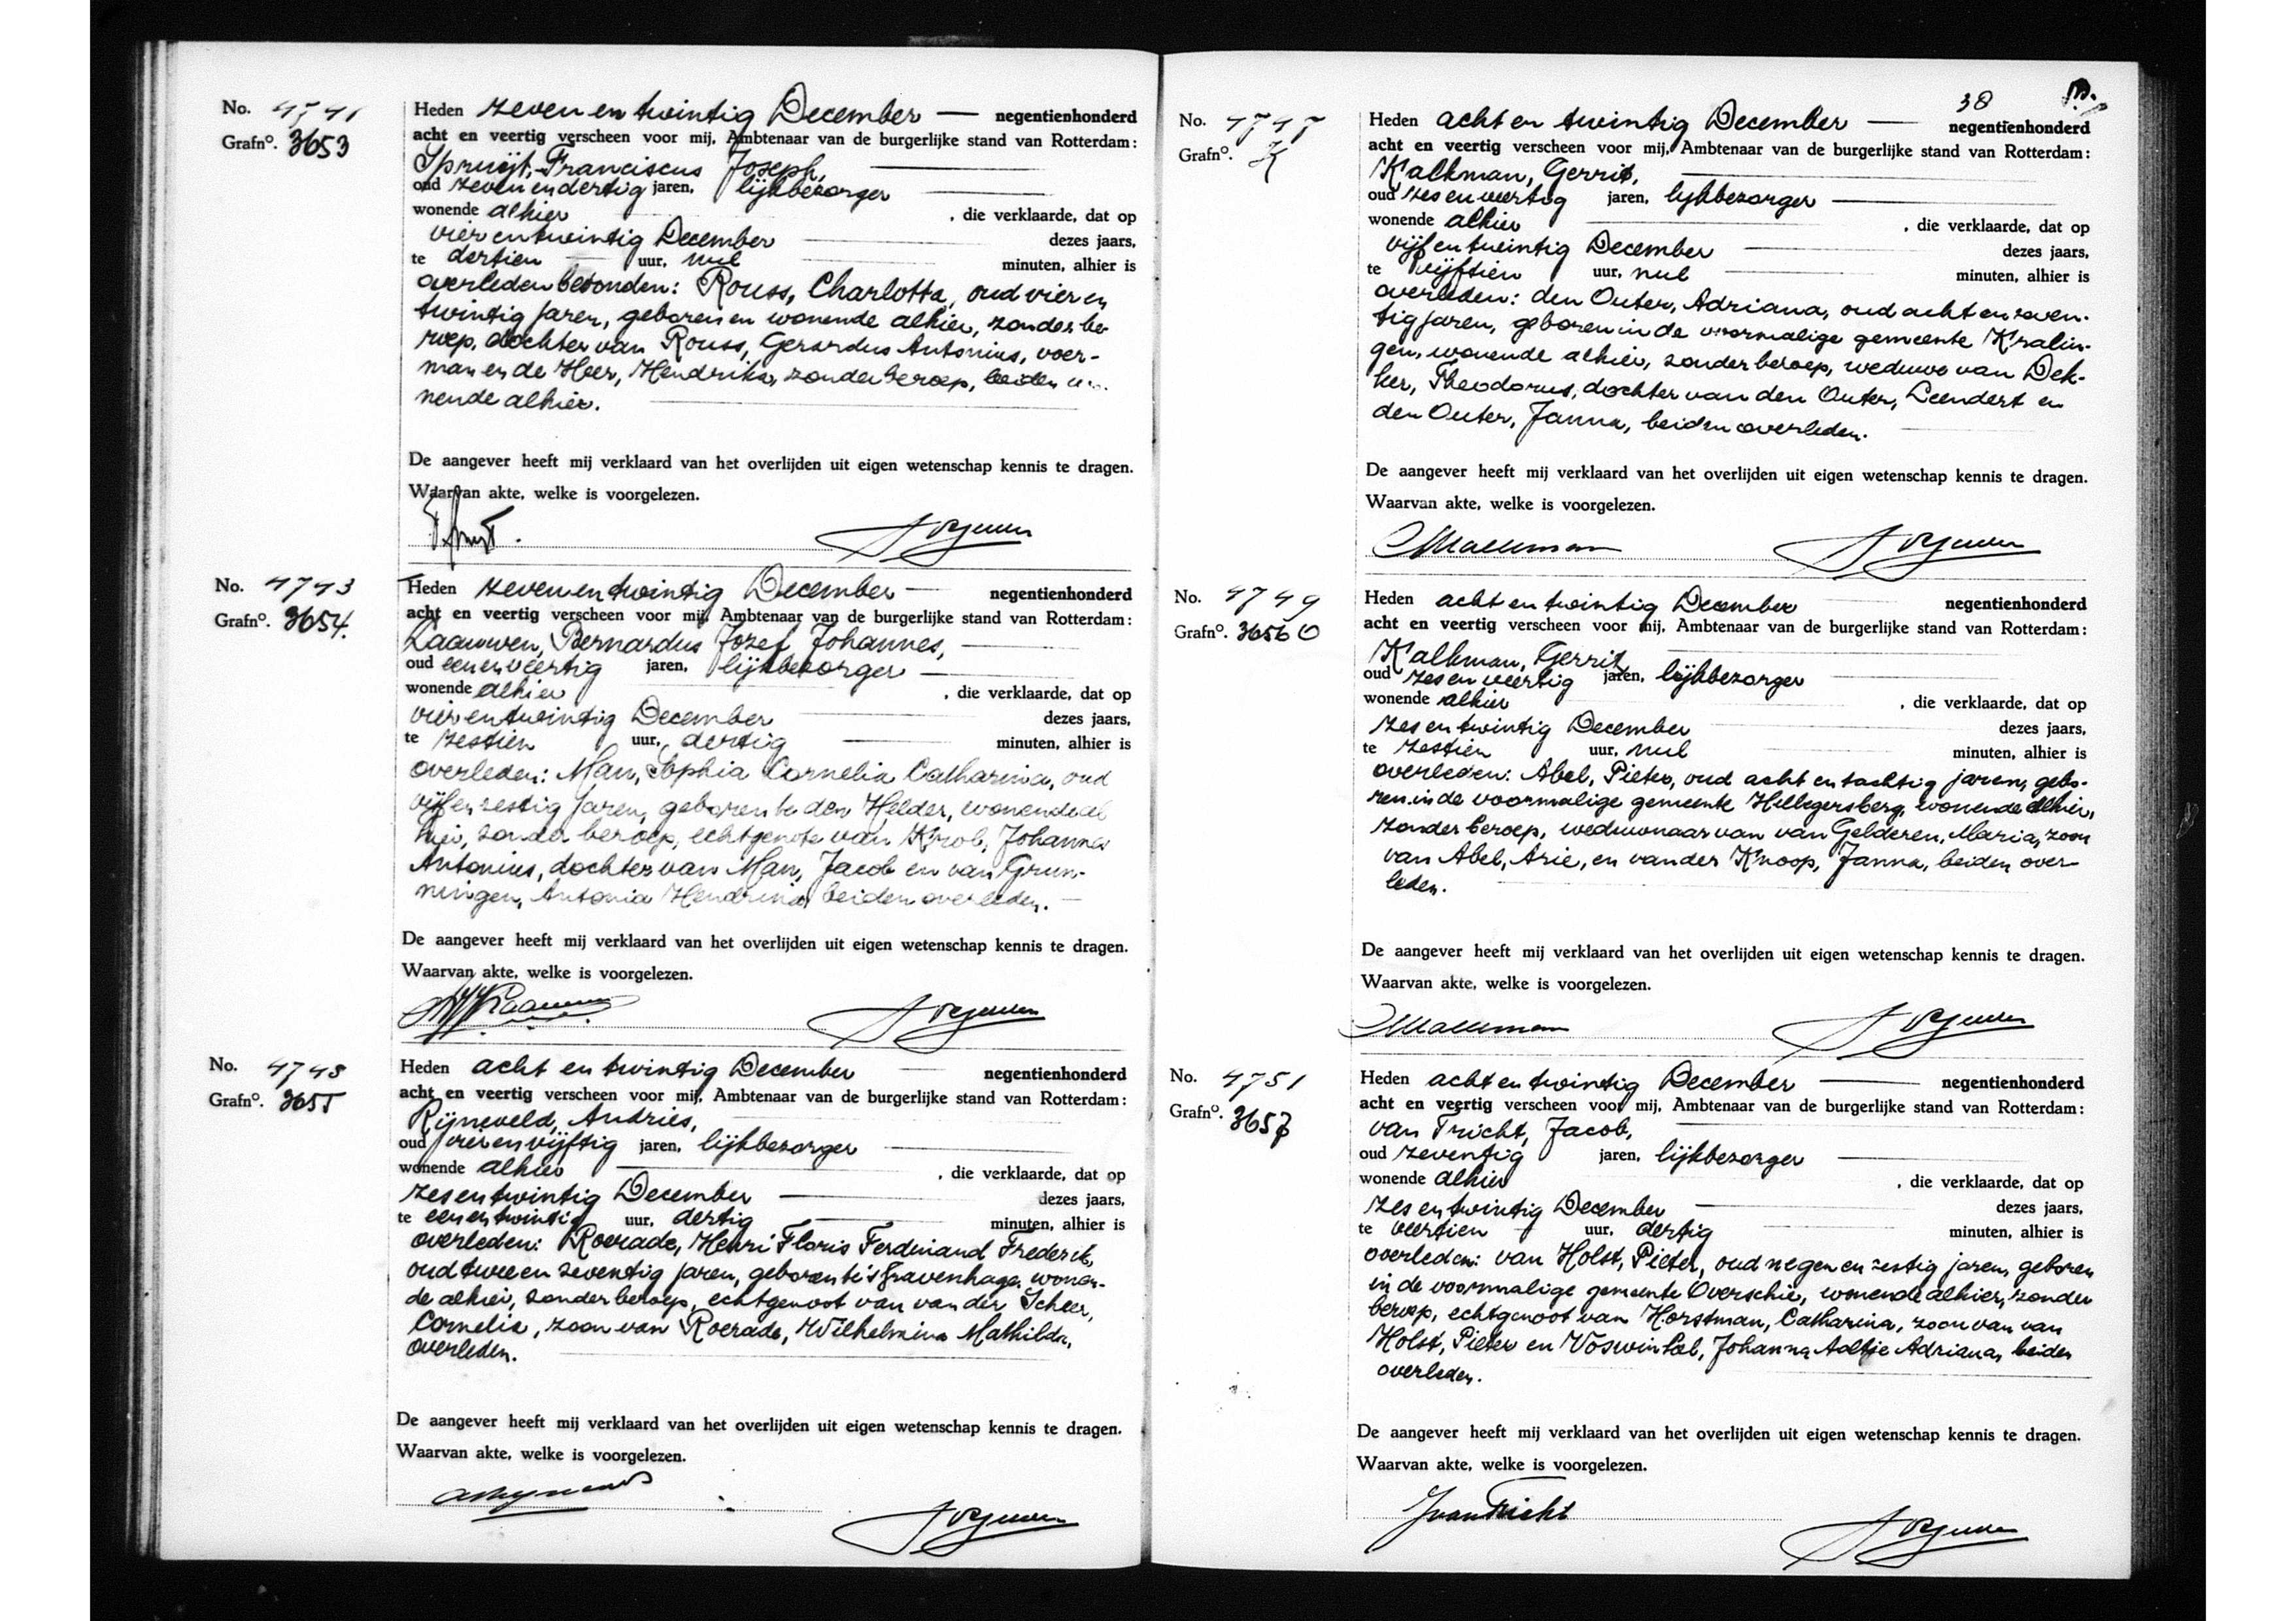 No. 4741
Grafno. 3653
Heden zeven en twintig December — negentienhonderd
acht en veertig verscheen voor mij, Ambtenaar van de burgerlijke stand van Rotterdam:
Spruijt, Franciscus Joseph,
oud zeven en dertig jaren, lijkbezorger
wonende alhier , die verklaarde, dat op
vier en twintig December dezes jaars,
te dertien uur, nul minuten, alhier is
overleden bevonden: Rouss, Charlotta, oud vier en
twintig jaren, geboren en wonende alhier, zonder be-
roep, dochter van Rouss, Gerardus Antonius, voer-
man en de Heer, Hendrika, zonder beroep, beiden wo-
nende alhier.
De aangever heeft mij verklaard van het overlijden uit eigen wetenschap kennis te dragen.
Waarvan akte, welke is voorgelezen.
No. 4743
Grafno. 3654.
Heden zeven en twintig December — negentienhonderd
acht en veertig verscheen voor mij, Ambtenaar van de burgerlijke stand van Rotterdam:
Laauwen, Bernardus Jozef Johannes,
oud een en veertig jaren, lijkbezorger
wonende alhier , die verklaarde, dat op
vier en twintig December dezes jaars,
te zestien uur, dertig minuten, alhier is
overleden: Man, Sophia Cornelia Catharina, oud
vijf en zestig jaren, geboren te den Helder, wonende al
hier, zonder beroep, echtgenote van Krob, Johannes
Antonius, dochter van Man, Jacob en van Grun-
ningen, Antonia Hendrina, beiden overleden.
De aangever heeft mij verklaard van het overlijden uit eigen wetenschap kennis te dragen.
Waarvan akte, welke is voorgelezen.
No. 4745
Grafno. 3655
Heden acht en twintig December negentienhonderd
acht en veertig verscheen voor mij, Ambtenaar van de burgerlijke stand van Rotterdam:
Rijneveld, Andries,
oud vier en vijftig jaren, lijkbezorger
wonende alhier , die verklaarde, dat op
zes en twintig December dezes jaars,
te een en twintig uur, dertig minuten, alhier is
overleden: Roerade, Henri Floris Ferdinand Frederik,
oud twee en zeventig jaren, geboren te 's Gravenhage, wonen-
de alhier, zonder beroep, echtgenoot van van der Scheer,
Cornelia, zoon van Roerade, Wilhelmina Mathilda,
overleden.
De aangever heeft mij verklaard van het overlijden uit eigen wetenschap kennis te dragen.
Waarvan akte, welke is voorgelezen.
38
No. 4747
Grafno. K
Heden acht en twintig December — negentienhonderd
acht en veertig verscheen voor mij, Ambtenaar van de burgerlijke stand van Rotterdam:
Kalkman, Gerrit,
oud zes en veertig jaren, lijkbezorger
wonende alhier , die verklaarde, dat op
vijf en twintig December dezes jaars,
te vijftien uur, nul minuten, alhier is
overleden: den Outer, Adriana, oud acht en zeven-
tig jaren, geboren in de voormalige gemeente Kralin-
gen, wonende alhier, zonder beroep, weduwe van Dek-
ker, Theodorus, dochter van den Outer, Leendert en
den Outer, Janna, beiden overleden.
De aangever heeft mij verklaard van het overlijden uit eigen wetenschap kennis te dragen.
Waarvan akte, welke is voorgelezen.
No. 4749
Grafno. 3656 O
Heden acht en twintig December negentienhonderd
acht en veertig verscheen voor mij, Ambtenaar van de burgerlijke stand van Rotterdam:
Kalkman, Gerrit,
oud zes en veertig jaren, lijkbezorger
wonende alhier , die verklaarde, dat op
zes en twintig December dezes jaars,
te zestien uur, nul minuten, alhier is
overleden: Abel, Pieter, oud acht en tachtig jaren, gebo-
ren in de voormalige gemeente Hillegersberg, wonende alhier,
zonder beroep, weduwnaar van van Gelderen, Maria, zoon
van Abel, Arie, en van der Knoop, Janna, beiden over-
leden.
De aangever heeft mij verklaard van het overlijden uit eigen wetenschap kennis te dragen.
Waarvan akte, welke is voorgelezen.
No. 4751
Grafno. 3657
Heden acht en twintig December — negentienhonderd
acht en veertig verscheen voor mij, Ambtenaar van de burgerlijke stand van Rotterdam:
van Tricht, Jacob,
oud zeventig jaren, lijkbezorger
wonende alhier , die verklaarde, dat op
zes en twintig December dezes jaars,
te veertien uur, dertig minuten, alhier is
overleden: van Holst, Pieter, oud negen en zestig jaren, geboren
in de voormalige gemeente Overschie, wonende alhier, zonder
beroep, echtgenoot van Horstman, Catharina, zoon van van
Holst, Pieter en Voswinkel, Johanna Aaltje Adriana, beiden
overleden.
De aangever heeft mij verklaard van het overlijden uit eigen wetenschap kennis te dragen.
Waarvan akte, welke is voorgelezen.
JvanTricht